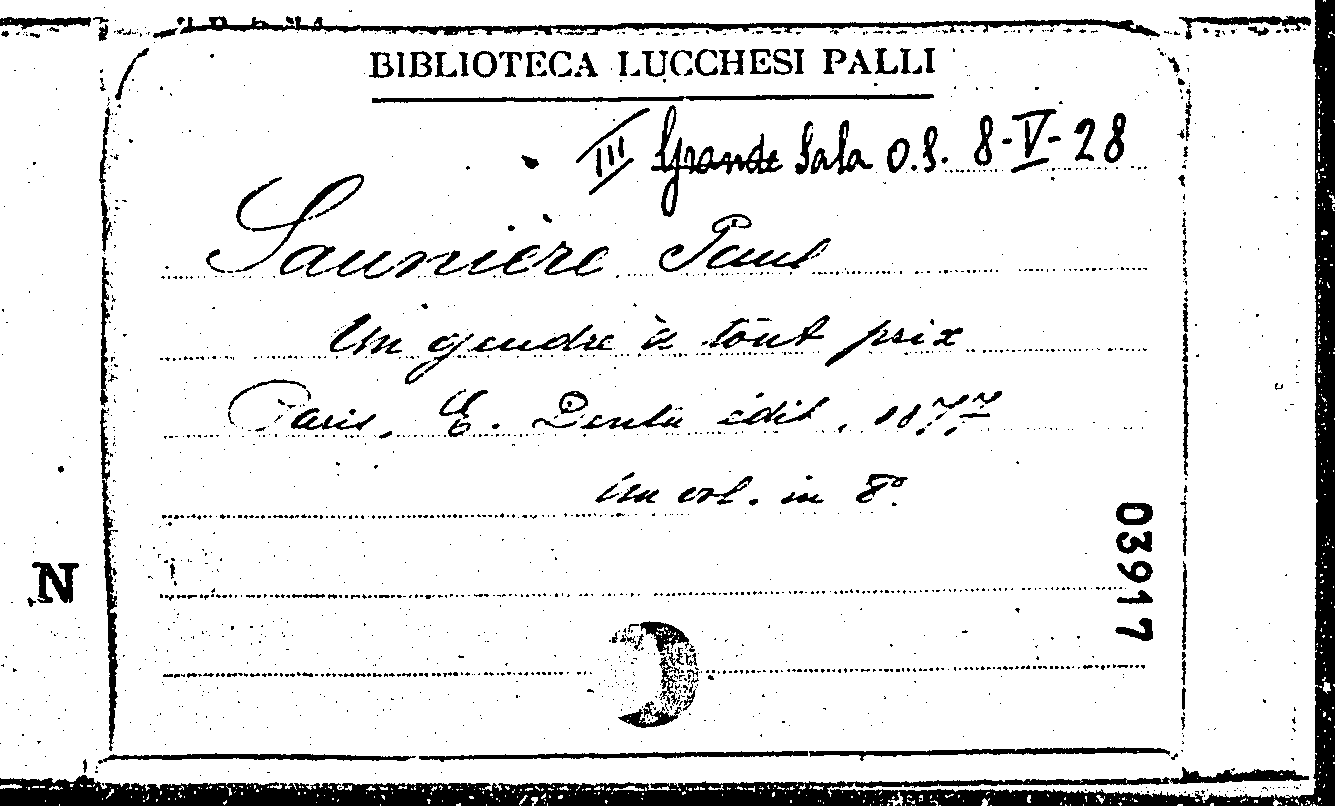 BIBLIOTECA LUCCHESI PALLI
III Grande Sala O.S. 8-V-28
Saunière Paul
Un gendre à tout prix
Paris, E. Dentu édit, 1877
Un vol. in 8º
03917
N